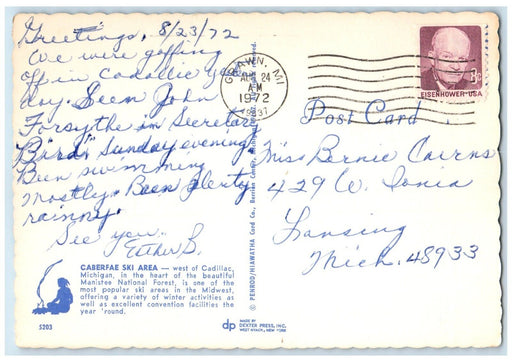 Greetings, 8/23/72
We were goffing
off in Cadallic yes
day. Seen John
Forsythe in Secretary
Bird. Sunday evening
Been swimming
mostly. Been plenty
rainny.
See you.
Esther B.
CABERFAE SKI AREA — west of Cadillac,
Michigan, in the heart of the beautiful
Manistee National Forest, is one of the
most popular ski areas in the Midwest,
offering a variety of winter activities as
well as excellent convention facilities the
year 'round.
5203
© PENROD/HIAWATHA Card Co., Berrien Center, Michigan
dp
MADE BY
DEXTER PRESS, INC.
WEST NYACK, NEW YORK
GRAWN, MI
AUG 24
A-M
1972
49637
EISENHOWER·USA
Post Card
Miss Bernie Cairns
429 W. Ionia
Lansing
Mich. 48933